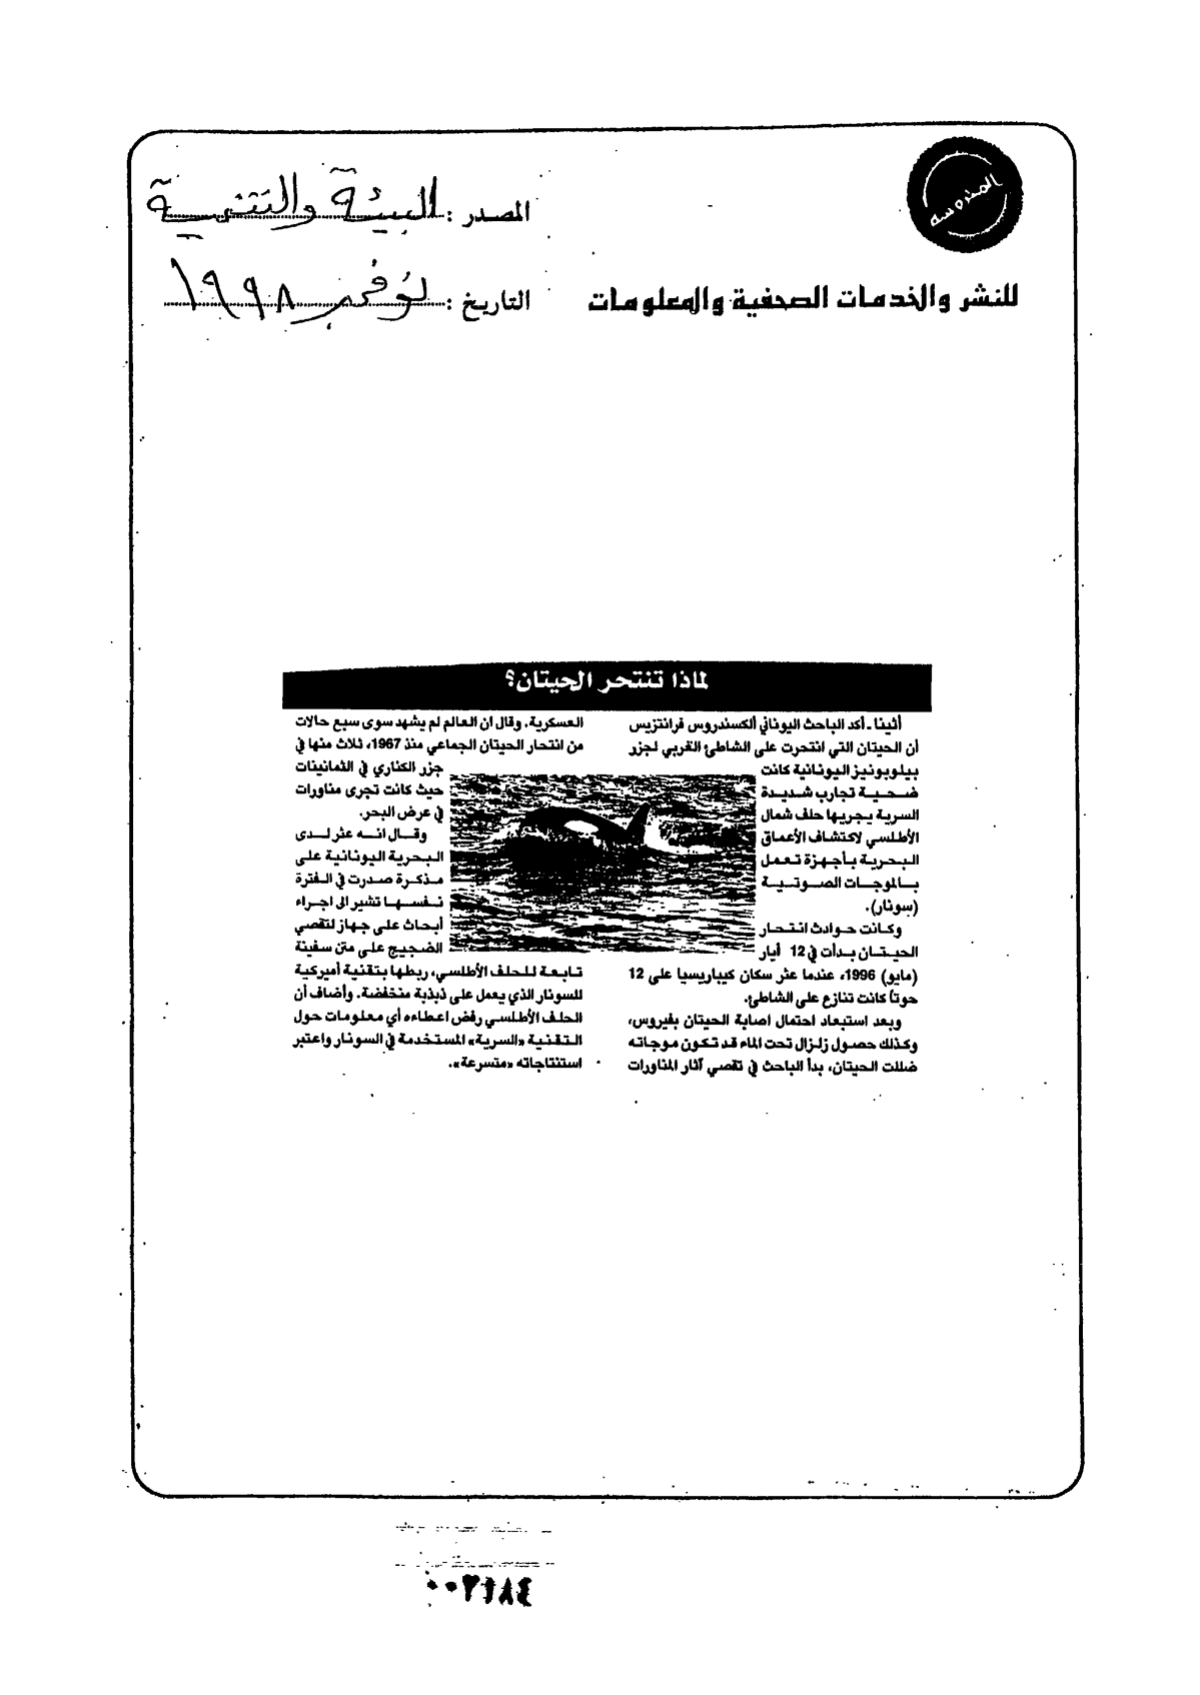 المحروسة
المصدر : البيئة والتنمية
للنشر والخدمات الصحفية والمعلومات
التاريخ : نوفمبر ١٩٩٨
لماذا تنتحر الحيتان؟
أثينا ـ أكد الباحث اليوناني ألكسندروس فرانتزيس
أن الحيتان التي انتحرت على الشاطئ الغربي لجزر
بيلوبونيز اليونانية كانت
ضحية تجارب شديدة
السرية يجريها حلف شمال
الأطلسي لاكتشاف الأعماق
البحرية بأجهزة تعمل
بالموجات الصوتية
(سونار).
وكانت حوادث انتحار
الحيتان بدأت في 12 أيار
(مايو) 1996، عندما عثر سكان كيباريسيا على 12
حوتاً كانت تنازع على الشاطئ.
وبعد استبعاد احتمال اصابة الحيتان بفيروس،
وكذلك حصول زلزال تحت الماء قد تكون موجاته
ضللت الحيتان، بدأ الباحث في تقصي آثار المناورات
العسكرية. وقال ان العالم لم يشهد سوى سبع حالات
من انتحار الحيتان الجماعي منذ 1967، ثلاث منها في
جزر الكناري في الثمانينات
حيث كانت تجرى مناورات
في عرض البحر.
وقال انه عثر لدى
البحرية اليونانية على
مذكرة صدرت في الفترة
نفسها تشير الى اجراء
أبحاث على جهاز لتقصي
الضجيج على متن سفينة
تابعة للحلف الأطلسي، ربطها بتقنية أميركية
للسونار الذي يعمل على ذبذبة منخفضة. وأضاف أن
الحلف الأطلسي رفض اعطاءه أي معلومات حول
التقنية «السرية» المستخدمة في السونار واعتبر
استنتاجاته «متسرعة».